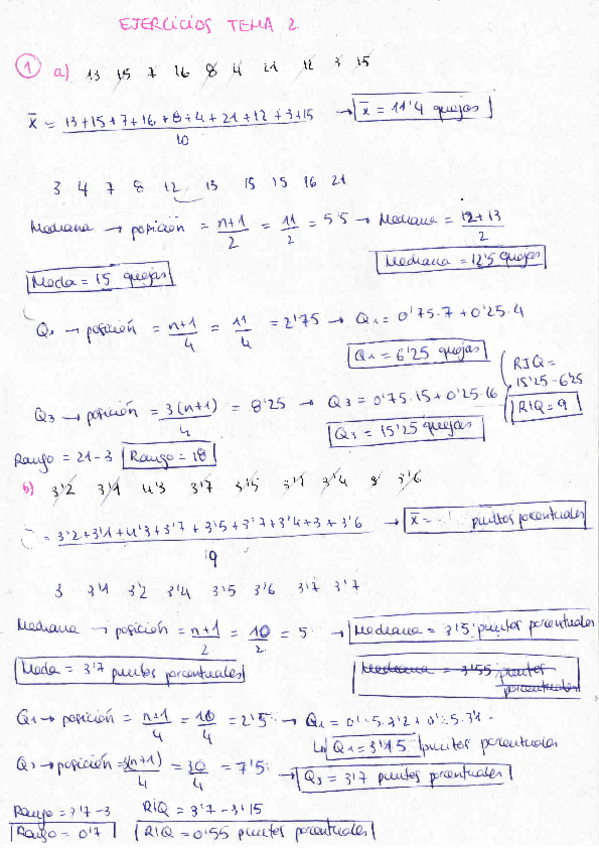 EJERCICIOS TEMA 2.
① a) 13 15 7 16 8 4 21 12 3 15
x̄ = 13+15+7+16+8+4+21+12+3+15 / 10 → x̄ = 11'4 quejas
3 4 7 8 12 13 15 15 16 21
Mediana → posición = n+1/2 = 11/2 = 5'5 → Mediana = 12+13/2
Mediana = 12'5 quejas
Moda = 15 quejas
Q1 → posición = n+1/4 = 11/4 = 2'75 → Q1 = 0'75·7 + 0'25·4
Q1 = 6'25 quejas
RIQ = 15'25 - 6'25
Q3 → posición = 3(n+1)/4 = 8'25 → Q3 = 0'75·15 + 0'25·16
RIQ = 9
Q3 = 15'25 quejas
Rango = 21-3 Rango = 18
b) 3'2 3'1 4'3 3'7 3'5 3'4 3 3'6
= 3'2+3'1+4'3+3'7+3'5+3'7+3'4+3+3'6 / 9 → x̄ = puntos porcentuales
3 3'1 3'2 3'4 3'5 3'6 3'7 3'7
Mediana → posición = n+1/2 = 10/2 = 5 → Mediana = 3'5 puntos porcentuales
Moda = 3'7 puntos porcentuales
Mediana = 3'55 puntos porcentuales
Q1 → posición = n+1/4 = 10/4 = 2'5 → Q1 = 0'5·3'2 + 0'5·3'1
Q1 = 3'15 puntos porcentuales
Q3 → posición = 3(n+1)/4 = 30/4 = 7'5 → Q3 = 3'7 puntos porcentuales
Rango = 3'7 - 3 RIQ = 3'7 - 3'15
Rango = 0'7 RIQ = 0'55 puntos porcentuales